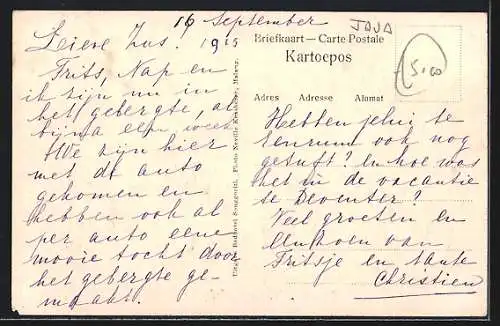 16 September
Lieve Zus. 1925
Frits, Nap en
ik zijn nu in
het gebergte, al
bijna een week
We zijn hier
met de auto
gekomen en
hebben ook al
per auto eene
mooie tocht door
het gebergte ge-
maakt.
JAVA
5,00
Briefkaart — Carte Postale
Kartoepos
Adres Adresse Alamat
Hebben jelui te
ook nog
getuft? En hoe was
het in de vacantie
te Deventer?
Veel groeten en
van
Fritsje en tante
Christien
Photo Neville Malang.